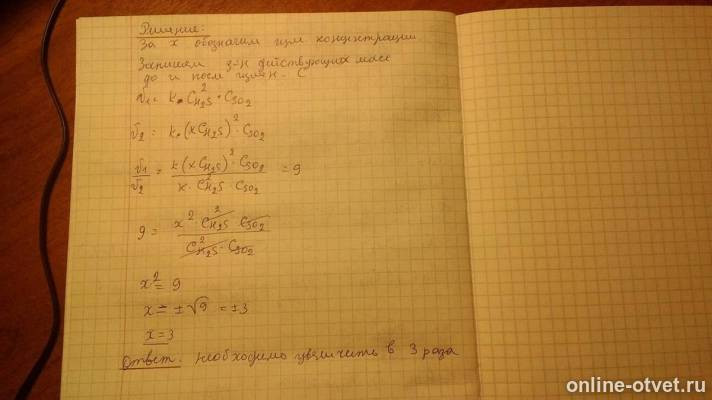 Решение:
За x обозначим изм концентрации
Запишем з-н действующих масс
до и после измен. C
v₁ = k · C²H₂S · CSO₂
v₂ = k · (xCH₂S)² · CSO₂
v₁/v₂ = k(xCH₂S)² · CSO₂ / k · C²H₂S · CSO₂ = 9
9 = x² · C²H₂S CSO₂ / C²H₂S · CSO₂
x² = 9
x = ±√9 = ±3
x = 3
Ответ. необходимо увеличить в 3 раза
online-otvet.ru